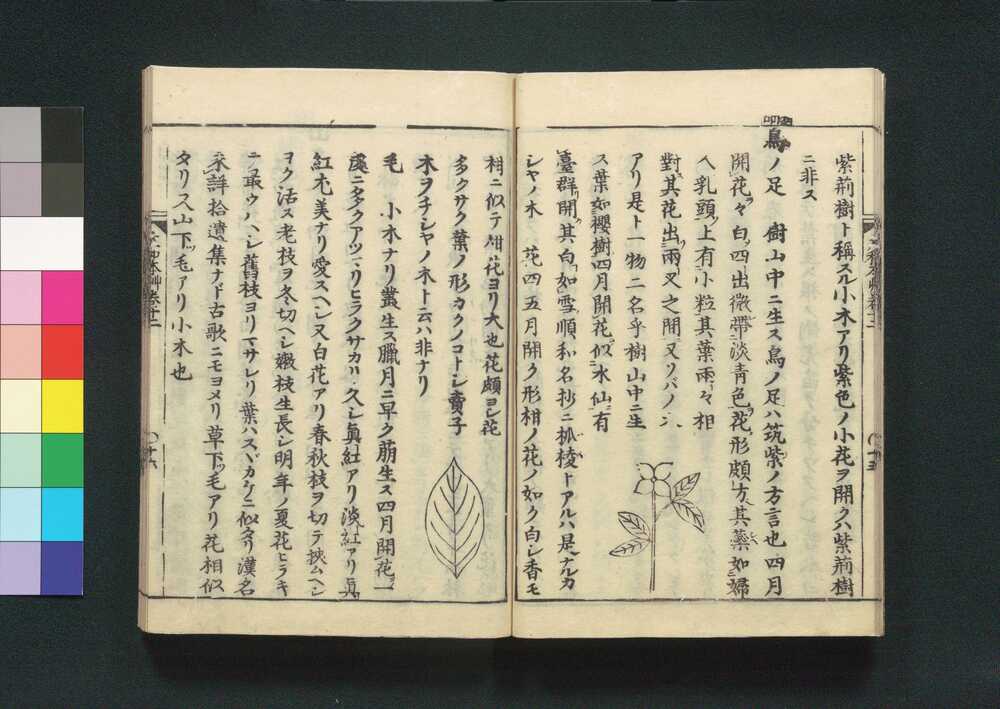 紫荊樹ト稱スル小木アリ紫色ノ小花ヲ開クハ紫荊樹
ニ非ス
鳥ノ足 樹山中ニ生ス鳥ノ足ハ筑紫ノ方言也四月
開花々白四出微帶淡青色花形頗方其蘂如婦
人乳頭上有小粒其葉兩々相
對其花出兩叉之間又ソバノ木
アリ是ト一物二名乎樹山中ニ生
ス葉如櫻樹四月開花似水仙有
臺群開其白如雪順和名抄ニ柧棱トアルハ是ナルカ
シヤノ木 花四五月開ク形柑ノ花ノ如ク白シ香モ
柑ニ似テ柑花ヨリ大也花頗ヨシ花
多クサク葉ノ形カクノコトシ賣子
木ヲチシヤノ木ト云ハ非ナリ
毛 小木ナリ叢生ス臘月ニ早ク萠生ス四月開花一
處ニ多クアツマリヒラクサカリ久シ眞紅アリ淡紅アリ眞
紅尤美ナリ愛スヘシ又白花アリ春秋枝ヲ切テ挾ムヘシ
ヨク活ス老枝ヲ冬切ヘシ嫩枝生長シ明年ノ夏花ヒラキ
テ最ウルハシ舊枝ヨリマサレリ葉ハスヾカケニ似タリ漢名
未詳拾遺集ナド古歌ニモヨメリ草下ツ毛アリ花相似
タリ又山下ツ毛アリ小木也